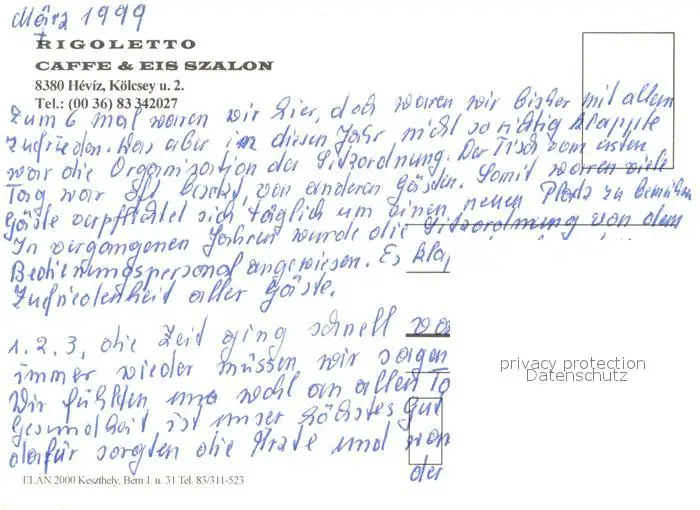 März 1999
RIGOLETTO
CAFFE & EIS SZALON
8380 Hévíz, Kölcsey u. 2.
Tel.: (00 36) 83 342027
Zum 6 mal waren wir hier, doch waren wir bisher mit allem
Zufrieden. Was aber in diesen Jahr nicht so richtig klappte
war die Organisation der Sitzordnung. Der Tisch vom ersten
Tag war oft besetzt, von anderen Gästen. Somit waren viele
Gäste verpflichtet sich täglich um einen neuen Platz zu bemühen
In vergangenen Jahren wurde die Sitzordnung von dem
Bedienungspersonal angewiesen. Es
Zufriedenheit aller Gäste.
1. 2. 3, die Zeit ging schnell
immer wieder müssen wir sagen
Wir fühlten uns wohl an allen
Gesundheit ist unser höchstes Gut
dafür sorgten die Ärzte und von
der
privacy protection
Datenschutz
ELAN 2000 Keszthely, Bem J. u. 31 Tel. 83/311-523